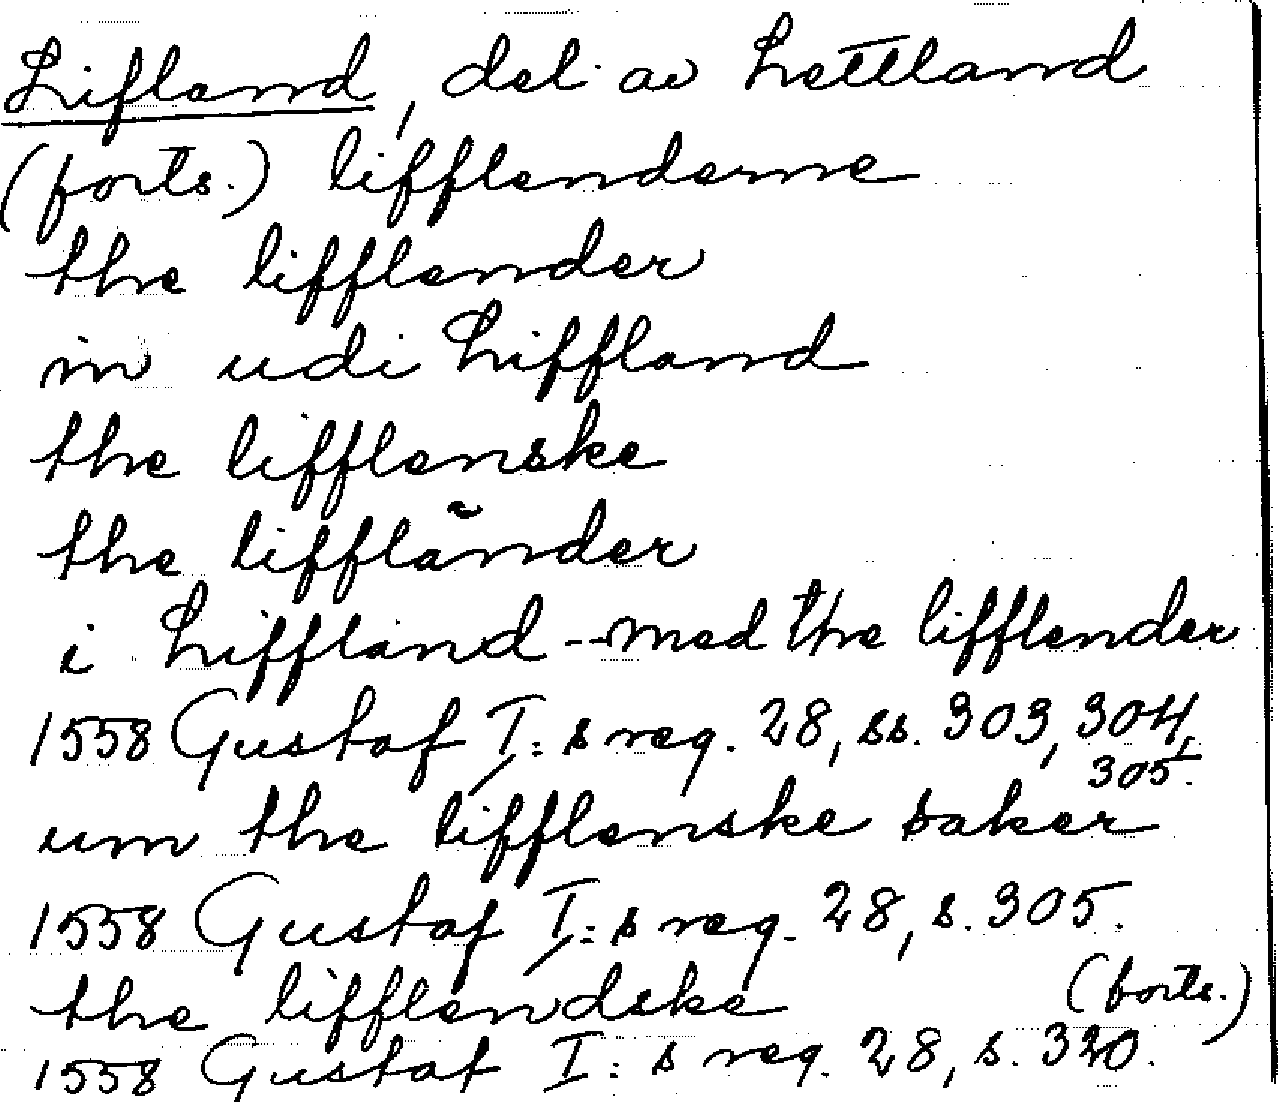 Lifland, del av Lettland
(forts.) lifflenderne
the lifflender
in udi Liffland
the lifflenske
the liffländer
i Liffland -- med the lifflender
1558 Gustaf I:s reg. 28, ss. 303, 304,
305.
um the lifflenske saker
1558 Gustaf I:s reg. 28, s. 305.
the lifflendske (forts.)
1558 Gustaf I:s reg. 28, s. 320.